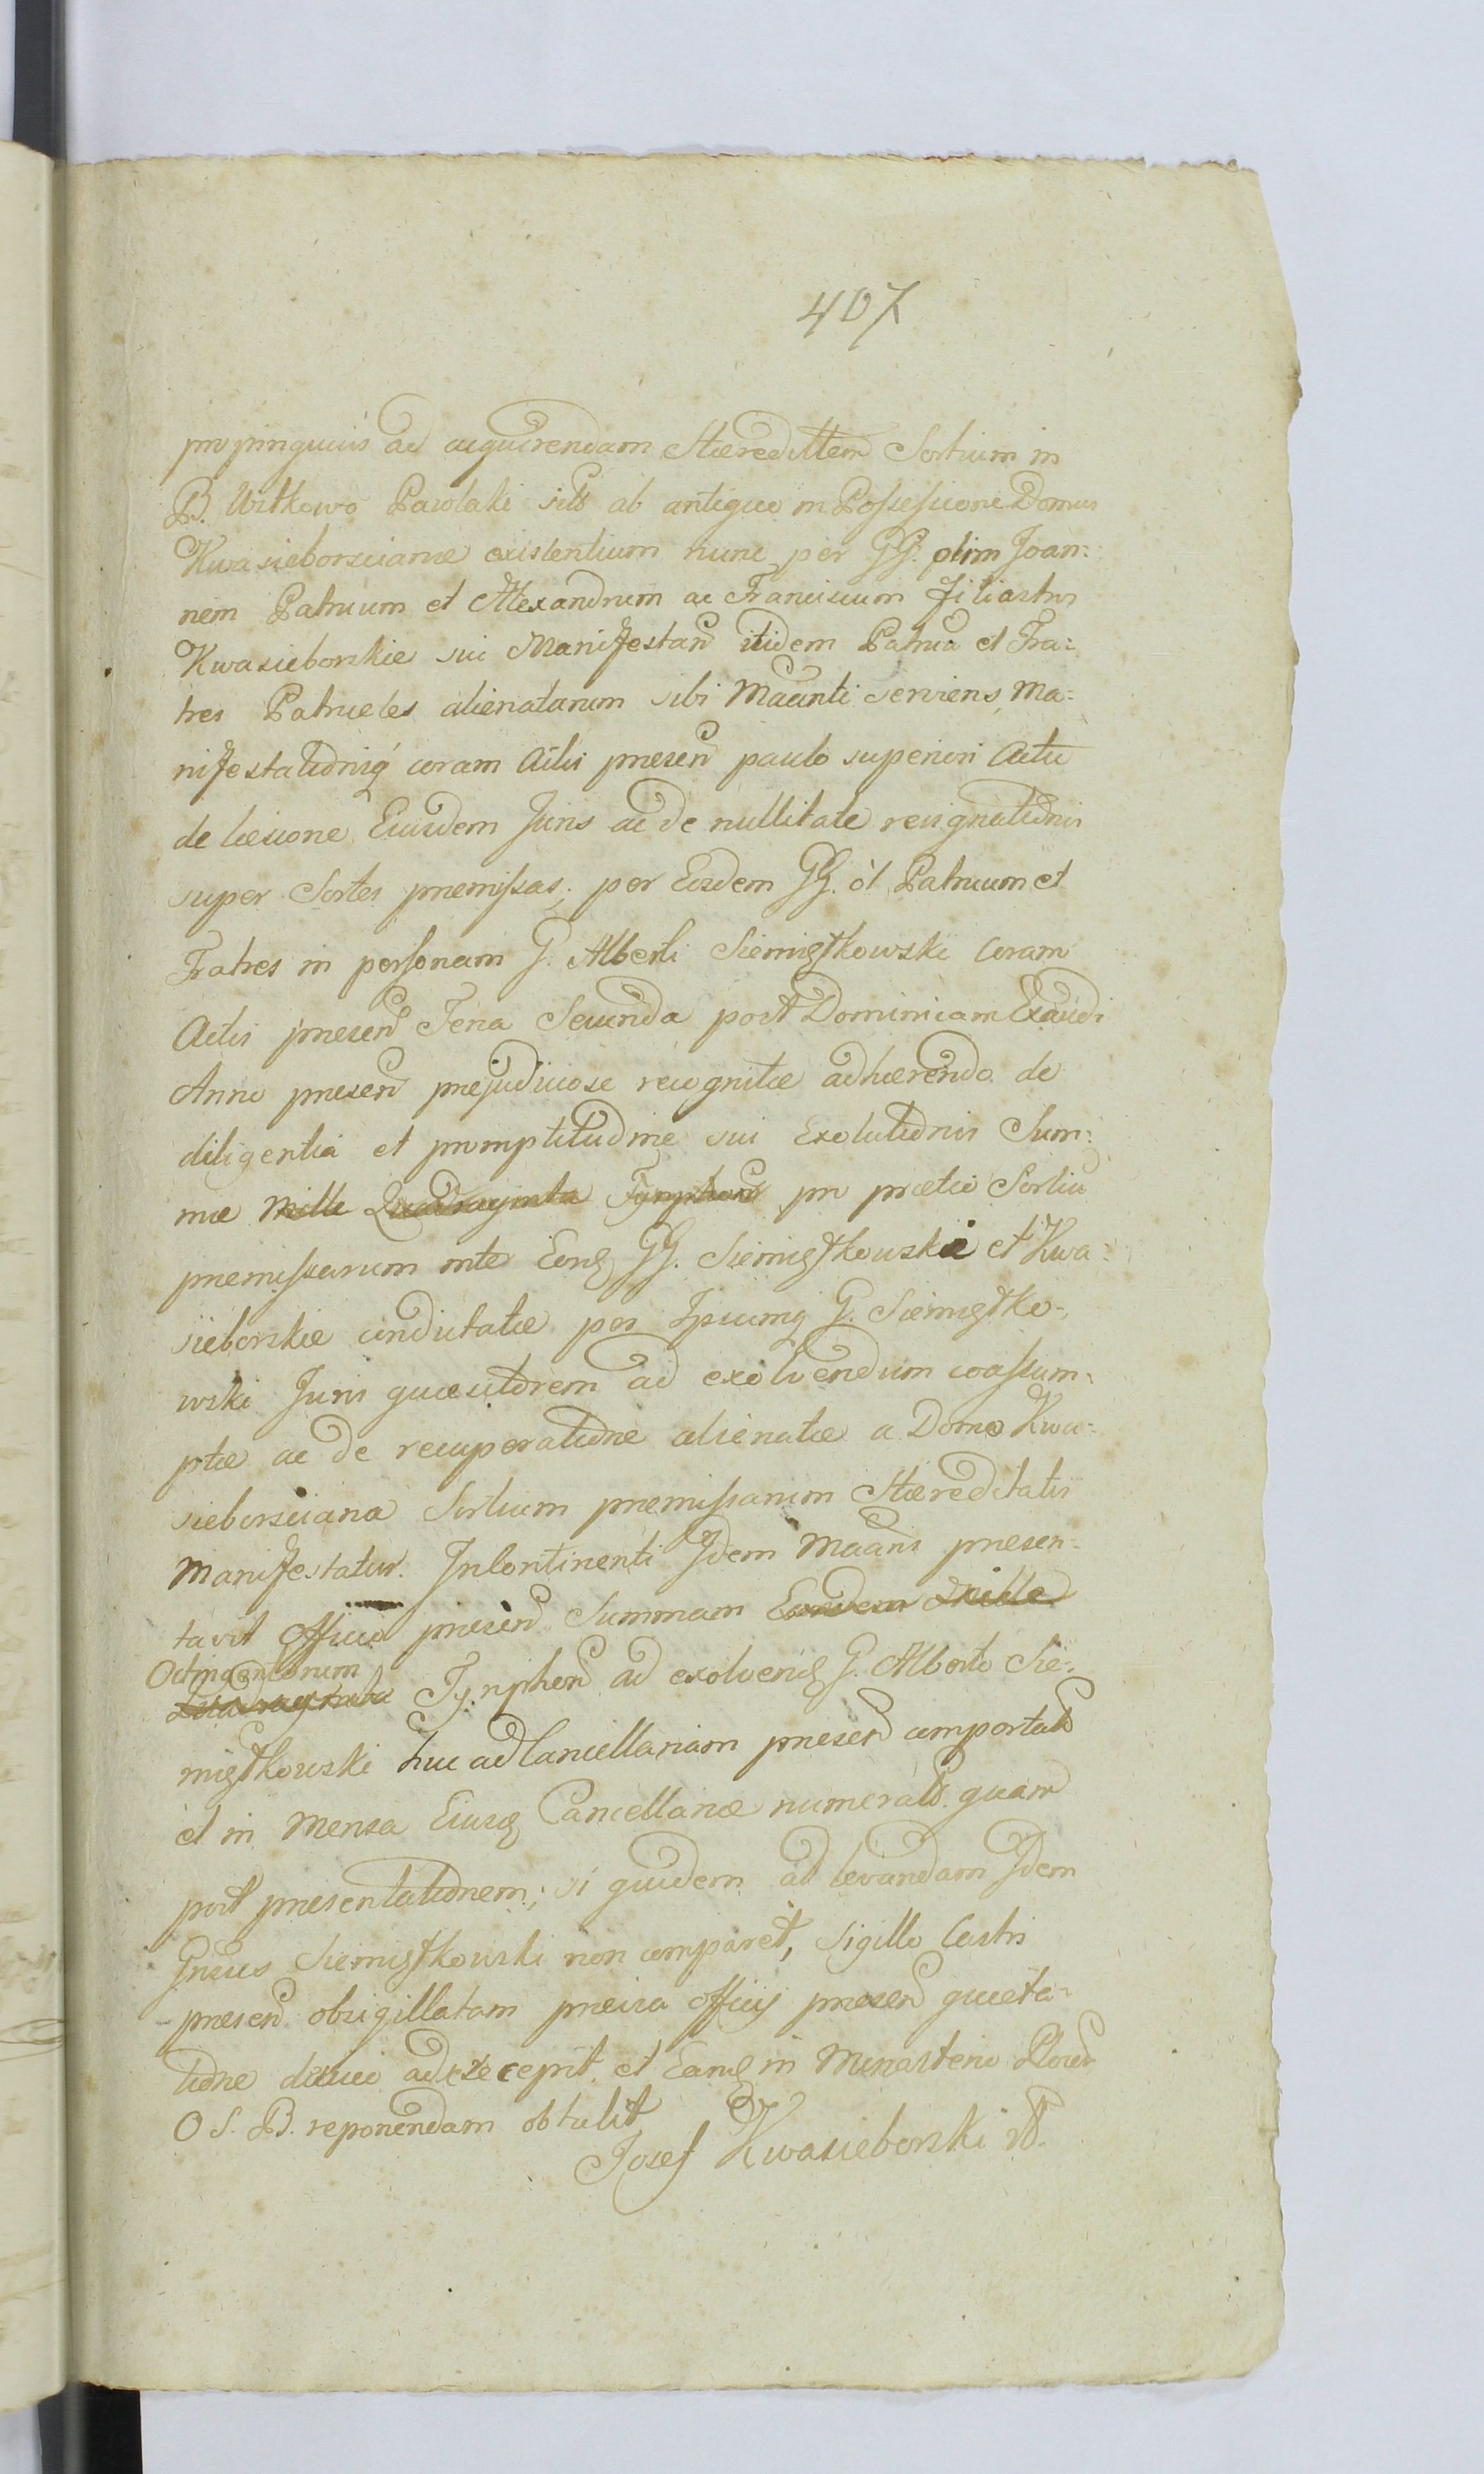 407
propinquius ad acquirendam Hæredittem Sortium in
B. Witkowo Pawlaki sitt ab antiquo in Possessione Domus
Kwasieborsciane existentium nunc per GG. olim Joan:
nem Patruum et Alexandrum ac Franciscum Filiastros
Kwasieborskie sui Manifestan itidem Patrua et Fra:
tres Patrueles alienatarum sibi Maanti serviens, Ma:
nifestationisq coram Actis presen paulo superiori Actu
de læsione Eiusdem Juris ac de nullitate resignationis
super Sortes premissas, per Eosdem GG. ol Patruum et
Fratres in personam G. Alberti Siemiątkowski Coram
Actis presen Feria Secunda post Dominicam Exaudi
Anno presen prejudiciose recognitæ adhærendo de
diligentia et promptitudine sui Exolutionis Sum:
mæ Mille Quadraginta Tynphon pro prætio Sortiu
premissarum inter Eosq GG. Siemiątkowskie et Kwa:
sieborskie condictatæ per Ipsumq G. Siemiątko:
wski Juris quæsitorem ad exolvendum coassum:
ptæ ac de recuperatione alienatæ a Domo Kwa:
sieborsciana Sortium premissarum Hæreditatis
Manifestatur. Incontinenti Idem Maans presen:
tavit Officio presen Summam Eandem Mille
Octingentorum
Quadraginta Tynphon ad exolvenq G. Alberto Sie:
miątkowski huc ad Cancellariam presen comportatt
et in Mensa Eiusq Cancellariæ numeratt. quam
post presentationem, si quidem ad levandam Idem
Gnsus Siemiątkowski non comparet, Sigillo Castri
presen obsigillatam previa Officij presen quieta:
tione ad excepit, et Eamq in Monasterio
O S. B. reponendam obtulit
Josef Kwasieborski